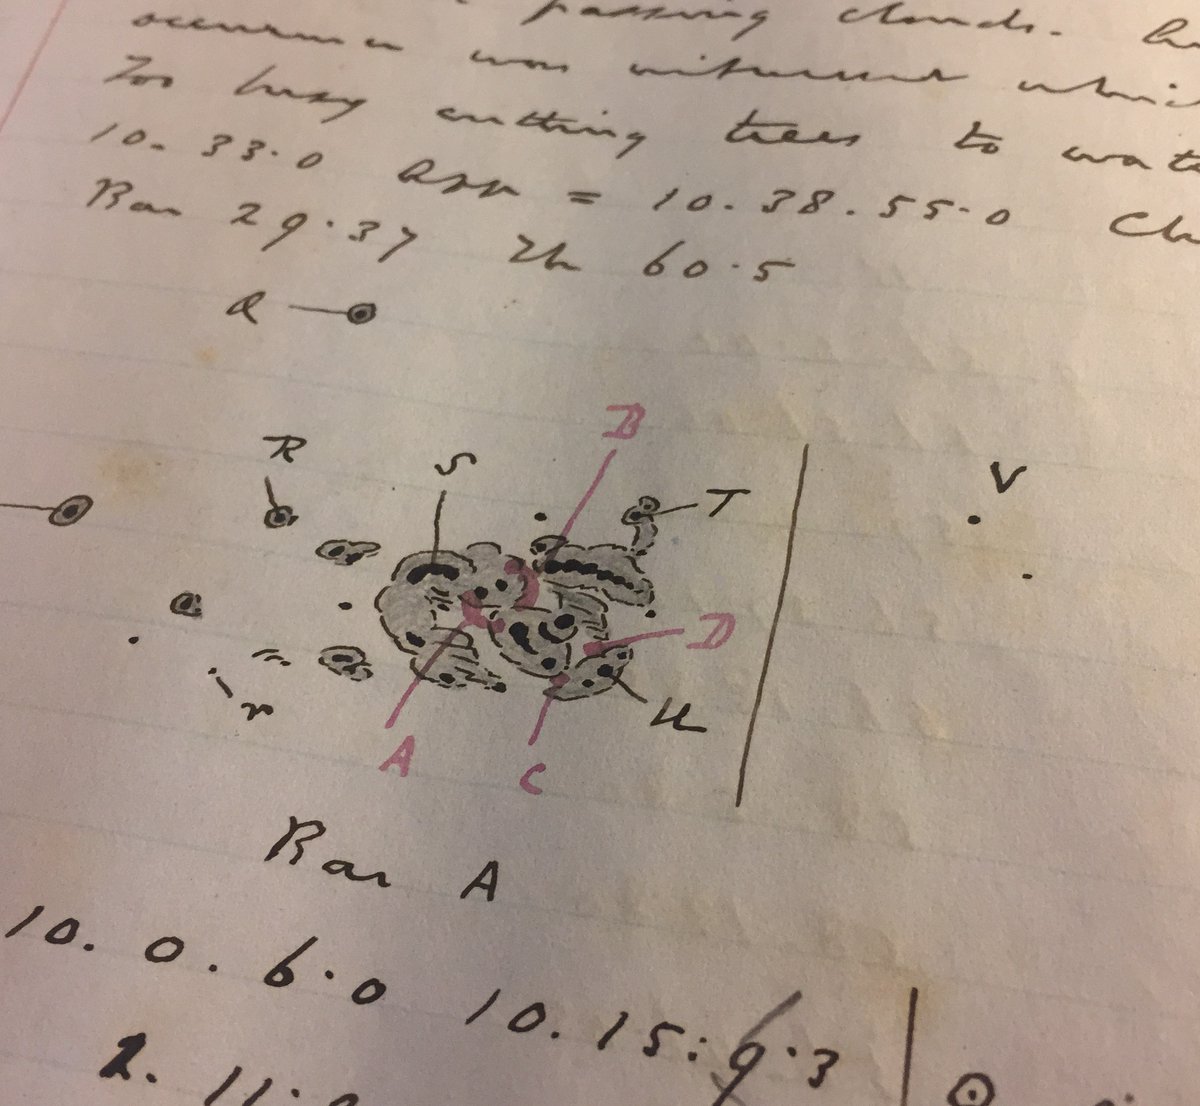 passing clouds.
occurrence was witnessed which
Too busy cutting trees to
10. 33. 0 App = 10. 38. 55. 0
Bar 29.37 Th 60.5
Q
R S B T V
D
r U
A C
Bar A
10. 0. 6. 0 10. 15: 9. 3
2. 11.